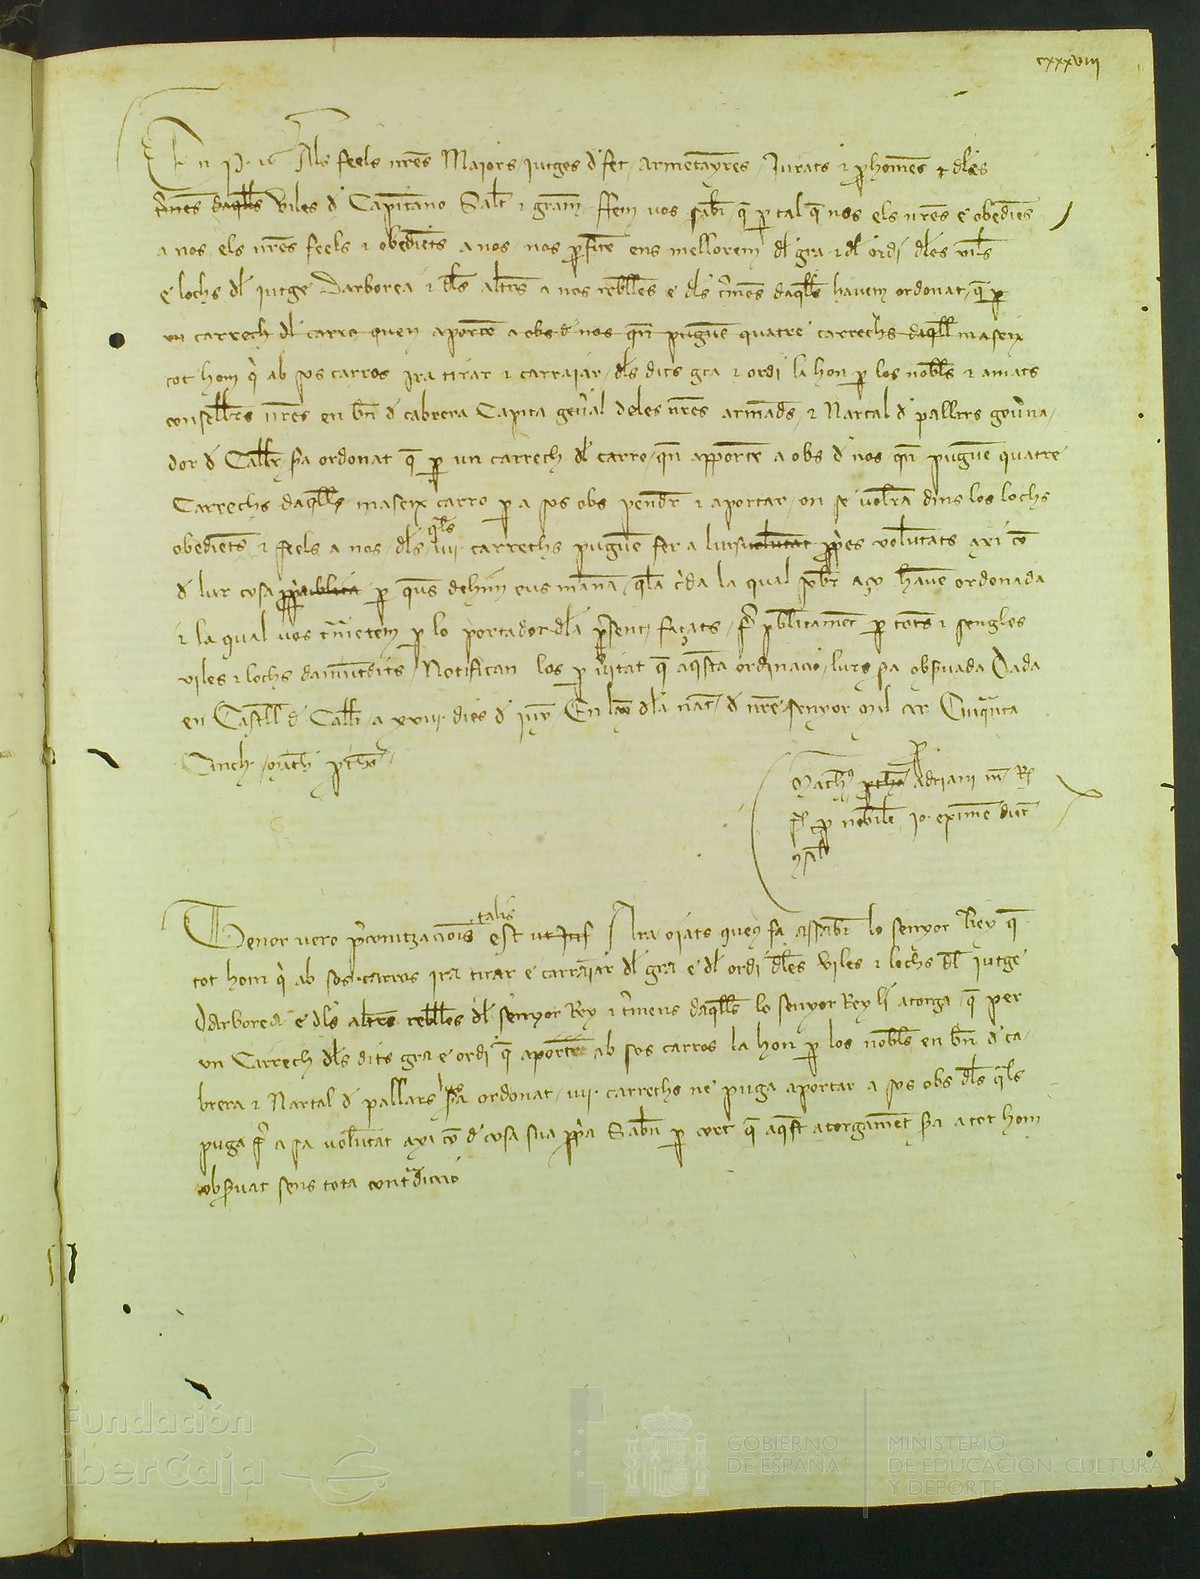 cxxxviii
En P. ec Als feels nres Maiors jutges d fet armentayres Jurats ⁊ phomes ⁊ dles
viles d Capitano Salt ⁊ gram ffem vos saber q p tal q nos els nres e obediens
a nos els nres feels ⁊ obediets a nos nos ens mellorem dl gra ⁊ dl ordi dles viles
e lochs dl jutge Darborea ⁊ dls altres a nos rebelles e dls tmens daqlls havem ordonat q p
un carrech dl carro quen aporte a obs d nos qn pugue quatre carrechs daqll maseix
tot hom q ab sos carros ira tirar ⁊ carraiar dls dits gra ⁊ ordi la hon p los nobles ⁊ amats
consellers nres en bn d cabrera Capita genal deles nres armades ⁊ Nartal d pallars gouna
dor d Caller sa ordonat q p un carrech dl carro qn apporte a obs d nos qn pugue quatre
Carrechs daqlls maseix carro p a sos obs pendr ⁊ aportar on se volra dins los lochs
obediets ⁊ feels a nos dls qls iiii carrechs pugue fer a lur voluntat ppies voluntats axi co
d lur cosa p qus dehim eus mana qla cda la qual sobr aço have ordonada
⁊ la qual vos tmetem p lo portador dla psent façats fr publicamet p totes ⁊ sengles
viles ⁊ lochs damutdits Notifican los p veritat q aqsta ordinacio lur sa obsuada Dada
en Castell d Caller a xxiii dies d juy En lay dla nat d nre senyor Mil ccc Cinqta
Cinch
p Adriani
p nobile Jo eximen
Tenor vero pconitzacionis talis est ut Ara oiats queus fa assaber lo senyor Rey q
tot hom q ab sos carros ira tirar e carraiar dl gra e dl ordi dles viles ⁊ lochs dl jutge
Darborea e dls altres rebelles dl senyor Rey ⁊ tmens daqlls lo senyor Rey li atorga q per
un Carrech dls dits gra e ordi q aporte ab sos carros la hon p los nobles en bn d ca
brera ⁊ Nartal d pallars sa ordonat iiii carrechs ne puga aportar a sos obs dls qls
puga fr a sa voluntat axi co d cosa sua ppia Saben p cert q aqst atorgamet sa a tot hom
obsuat sens tota contdiccio
Fundación
iberCaja
GOBIERNO
DE ESPAÑA
MINISTERIO
DE EDUCACIÓN, CULTURA
Y DEPORTE